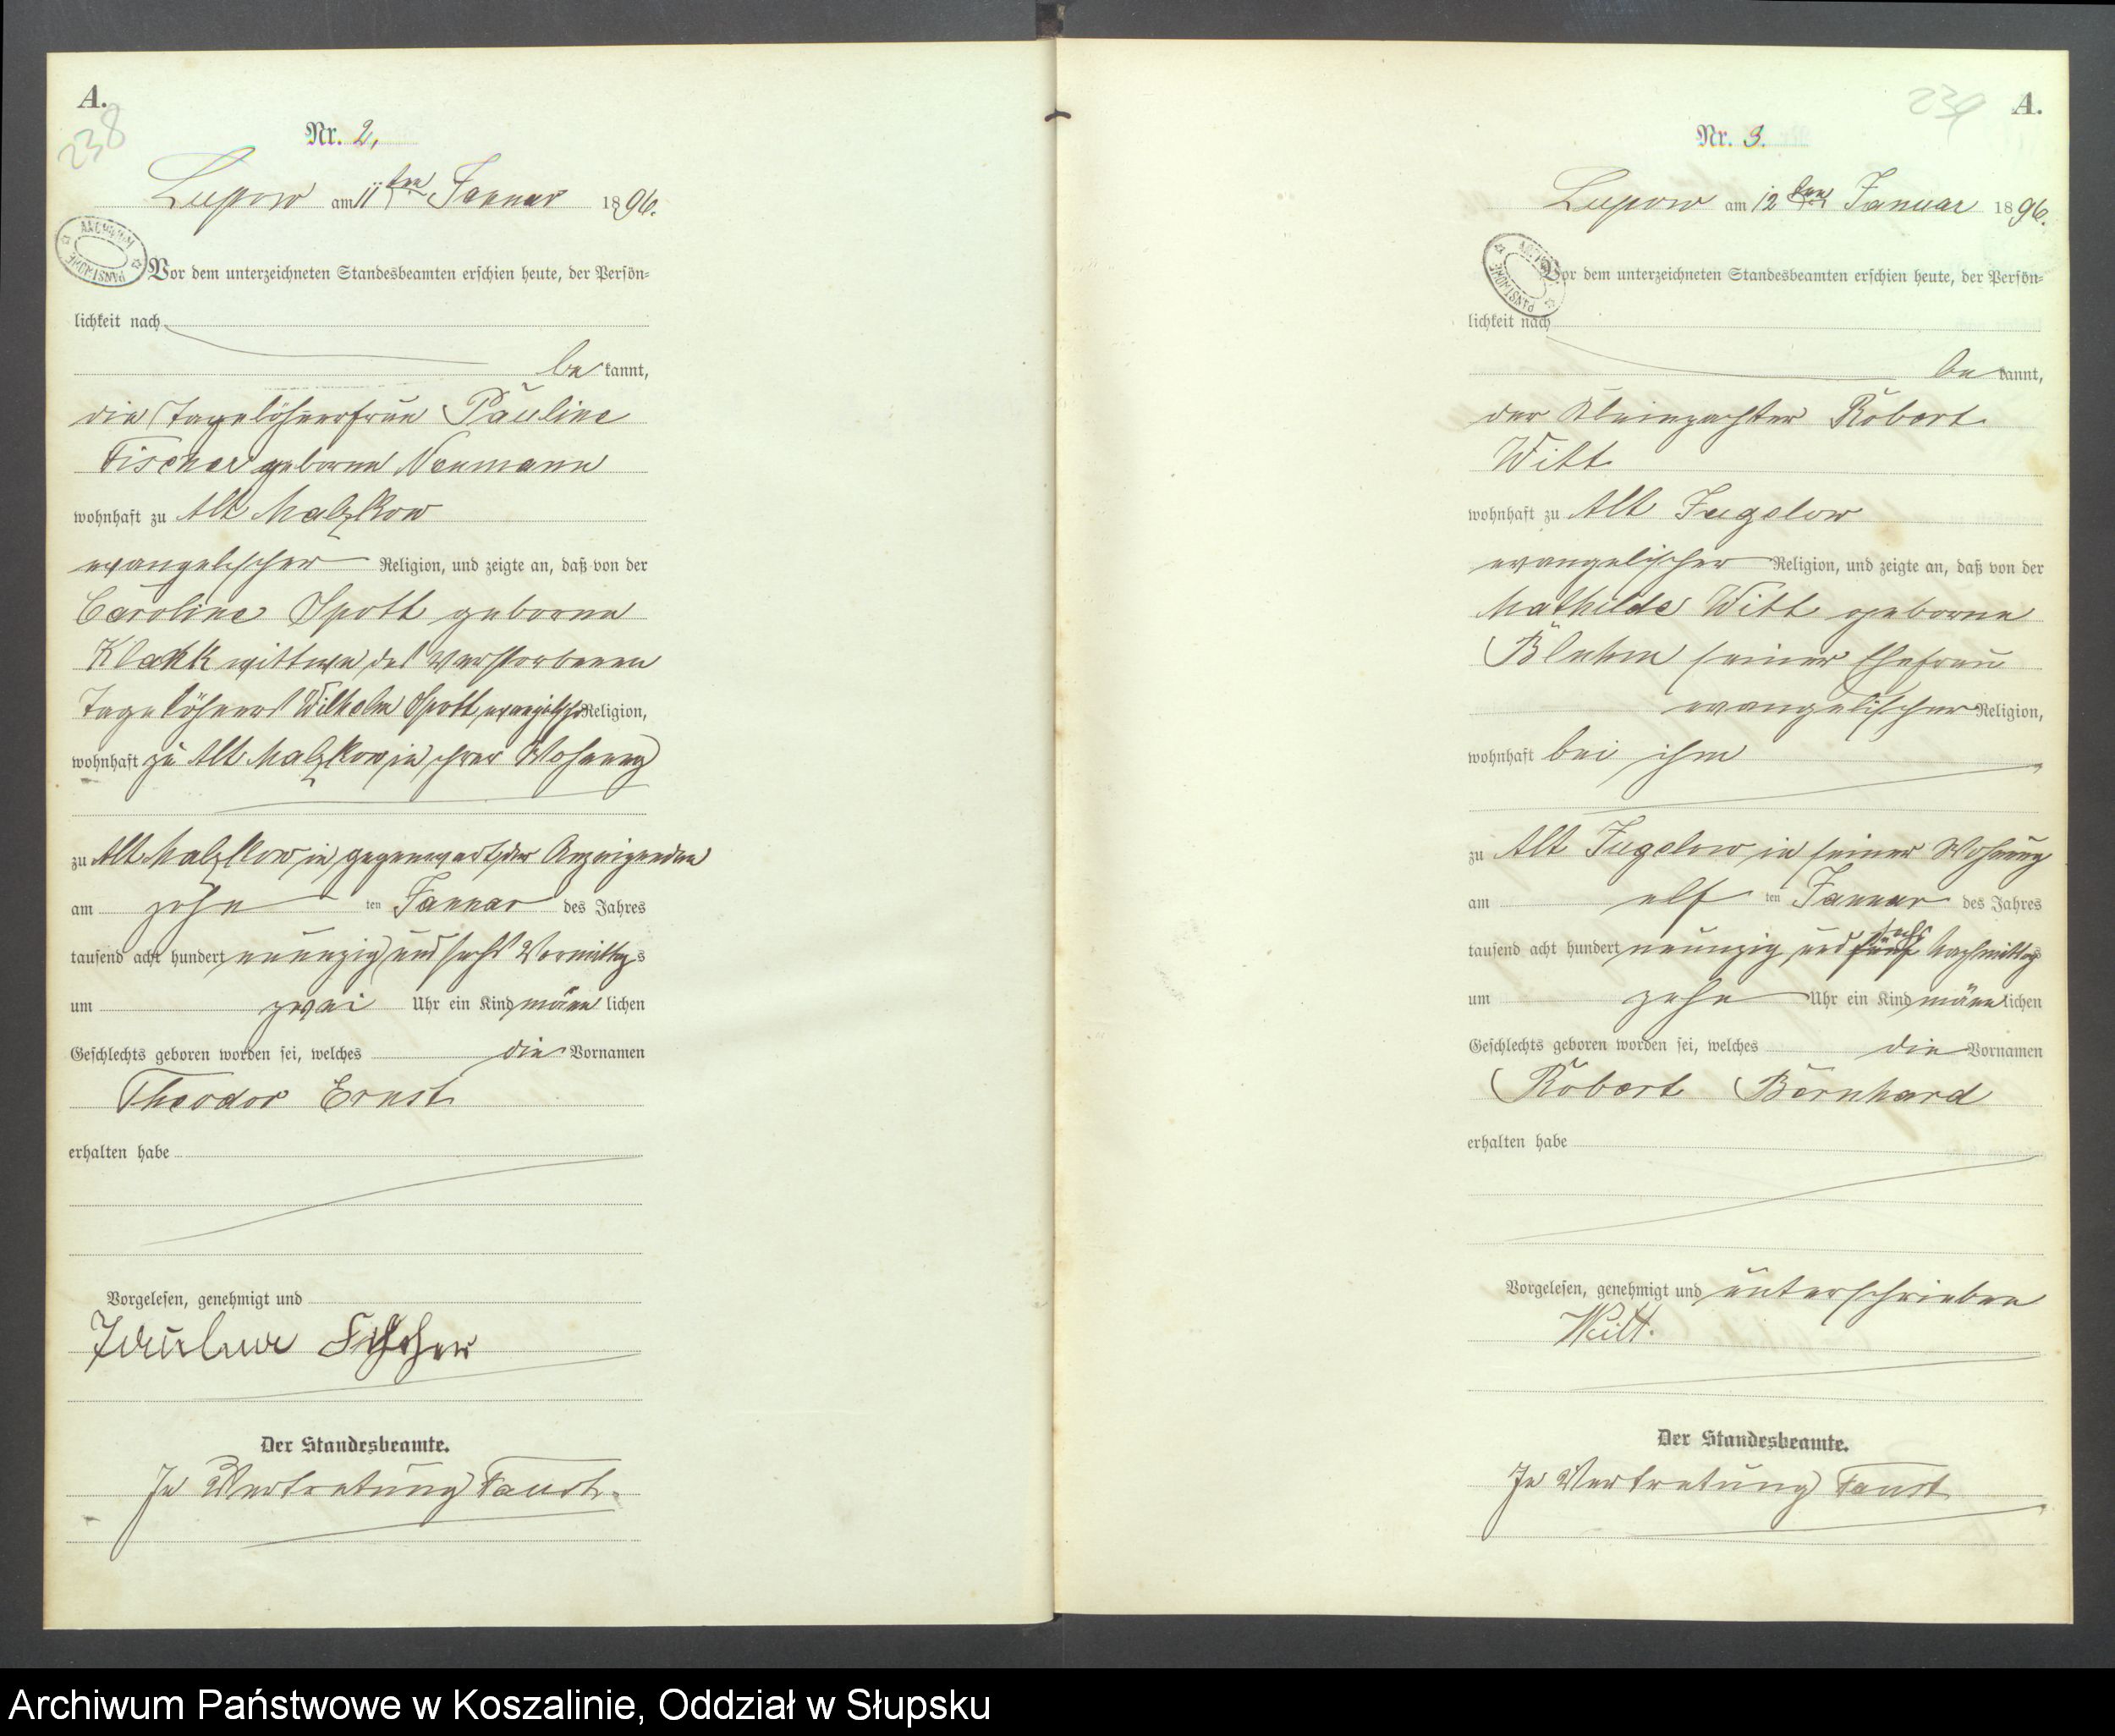 A.
238
Nr. 2,
Lupow am 11ten Januar 1896.
ARCHIWUM PAŃSTWOWE
Vor dem unterzeichneten Standesbeamten erschien heute, der Persön=
lichkeit nach
be kannt,
die Tagelöhnerfrau Pauline
Fischer geborne Neumann
wohnhaft zu Alt Malzkow
evangelischer Religion, und zeigte an, daß von der
Caroline Spott geborne
Klakk wittwe des verstorbenen
Tagelöhners Wilhelm Spott, evangelischer Religion,
wohnhaft zu Alt Malzkow, in ihrer Wohnung
zu Alt Malzkow, in gegenwart der Anzeigenden
am zehn ten Januar des Jahres
tausend acht hundert neunzig und sechs Vormittags
um zwei Uhr ein Kind männ lichen
Geschlechts geboren worden sei, welches die Vornamen
Theodor Ernst
erhalten habe
Vorgelesen, genehmigt und
Fischer
Der Standesbeamte.
In Vertretung Faust.
239
A.
Nr. 3.
Lupow am 12ten Januar 1896.
Vor dem unterzeichneten Standesbeamten erschien heute, der Persön=
lichkeit nach
be kannt,
der Kleinpachter Robert
Witt
wohnhaft zu Alt Jugelow
evangelischer Religion, und zeigte an, daß von der
Mathilde Witt geborne
Bluhm seiner Ehefrau
evangelischer Religion,
wohnhaft bei ihm
zu Alt Jugelow in seiner Wohnung
am elf ten Januar des Jahres
tausend acht hundert neunzig und fünf sechs Nachmittags
um zehn Uhr ein Kind männ lichen
Geschlechts geboren worden sei, welches die Vornamen
Robert Bernhard
erhalten habe
Vorgelesen, genehmigt und unterschrieben
Witt.
Der Standesbeamte.
In Vertretung Faust
Archiwum Państwowe w Koszalinie, Oddział w Słupsku